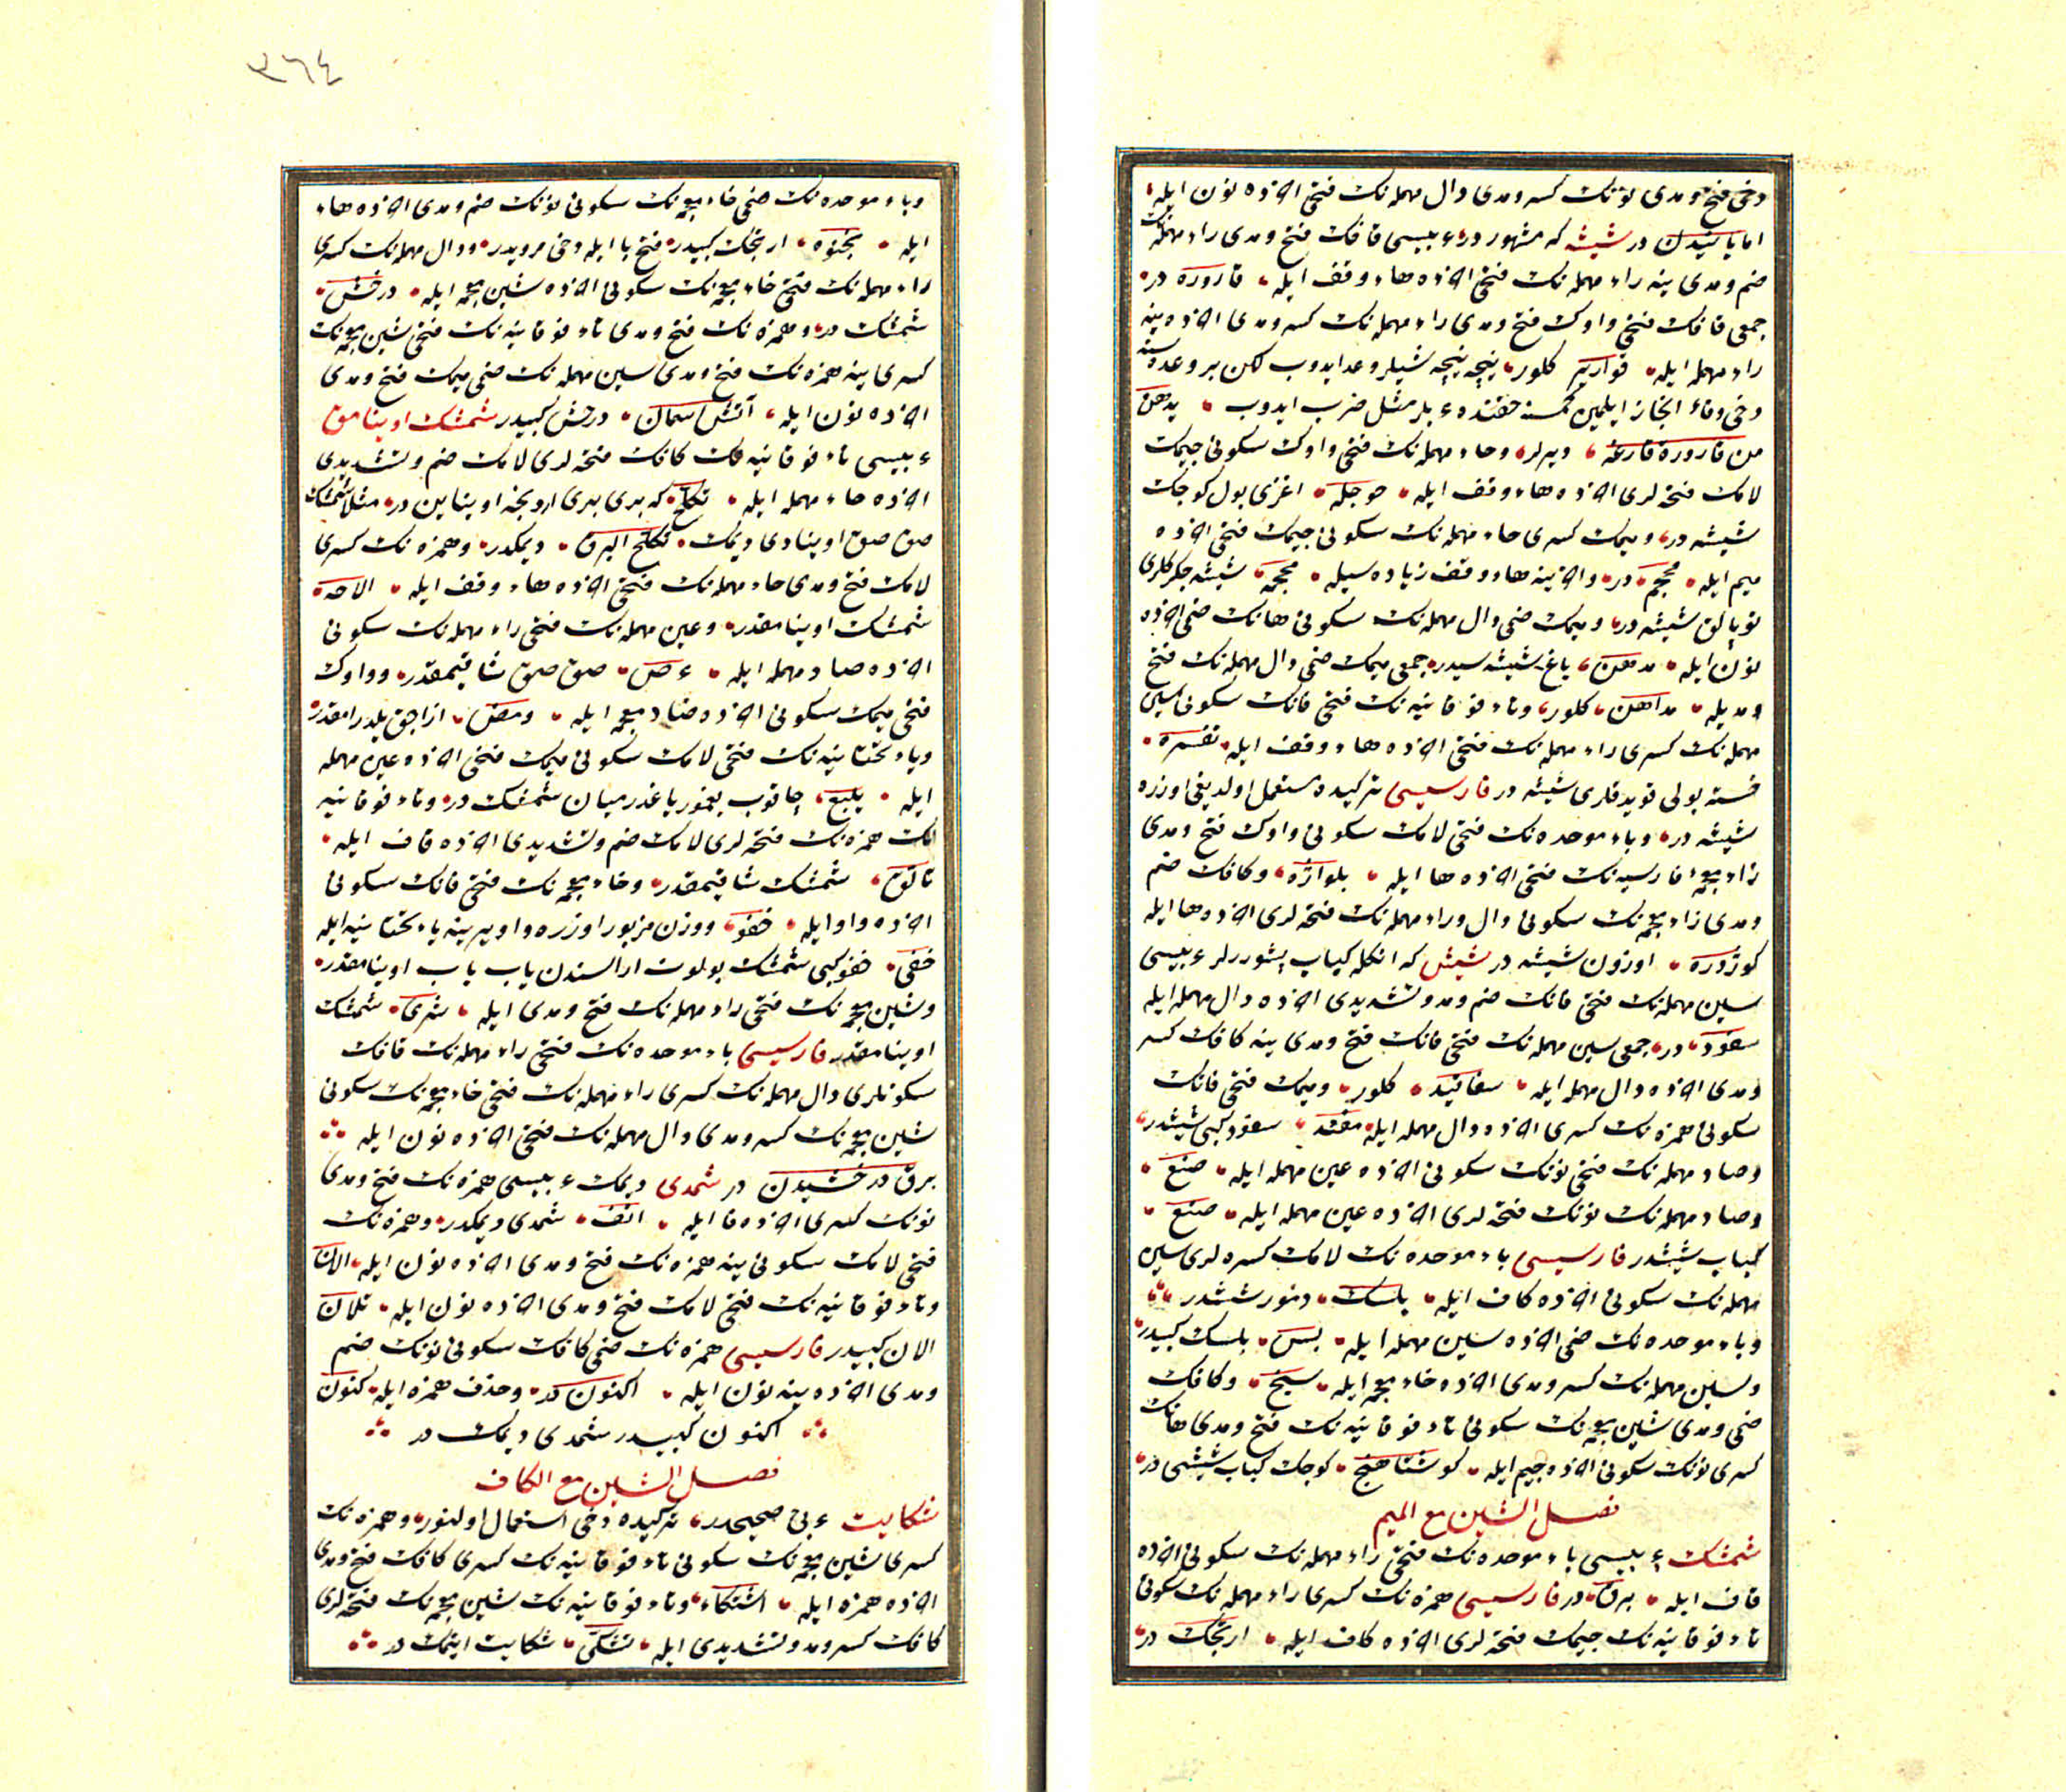 دخی فتح و مدی نونك كسر و مدی دال مهمله نك فتحی اخرده نون ایله
اما پاشیدن در شیشه كه مشهور در عربیسی قافك فتح و مدی راء مهمله نك
ضم و مدی ینه راء مهمله نك فتحی اخرده هاء وقف ایله قاروره در
جمعی قافك فتحی واوك فتح و مدی راء مهمله نك كسر و مدی اخرده ینه
راء مهمله ایله قواریر كلور نیجه نیجه شیلر وعد ایدوب لكن بر وعده سنه
دخی وفاء انجاز ایلمین كمسنه حقنده عربلر مثل ضرب ایدوب یدهن
من قارورة فارغة دیرلر وحاء مهمله نك فتحی واوك سكونی جیمك
لامك فتحه لری اخرده هاء وقف ایله حوجلة اغزی بول كوجك
شیشه در ومیمك كسری حاء مهمله نك سكونی جیمك فتحی اخرده
میم ایله محجم در واخرینه هاء وقف زیاده سیله محجمة شیشه جكركلری
شیشه در ومیمك ضمی دال مهمله نك سكونی هانك ضمی اخرده
نون ایله مدهن یاغ شیشه سیدر جمعی میمك ضمی دال مهمله نك فتح
ومدیله مداهن كلور وتاء فوقانیه نك فتحی فانك سكونی سین
مهمله نك كسری راء مهمله نك فتحی اخرده هاء وقف ایله تفسرة
خسته بولی قویدقلری شیشه در فارسیسی تركیده مستعمل اولدیغی اوزره
شیشه در وباء موحده نك فتحی لامك سكونی واوك فتح و مدی
زاء معجمه فارسیه نك فتحی اخرده ها ایله بلواژه وكافك ضم
ومدی زاء معجمه نك سكونی دال وراء مهمله نك فتحه لری اخرده ها ایله
كوزدره اوزون شیشه در شیش كه انكله كباب پشوررلر عربیسی
سین مهمله نك فتحی فانك ضم و مد و تشدیدی اخرده دال مهمله ایله
سفود در جمعی سین مهمله نك فتحی فانك فتح و مدی ینه فانك كسر
ومدی اخرده دال مهمله ایله سفافید كلور ومیمك فتحی فانك
سكونی همزه نك كسری اخرده دال مهمله ایله مفئد سفود كبی شیشدر
وصاد مهمله نك فتحی نونك سكونی اخرده عین مهمله ایله صنع
وصاد مهمله نك نونك فتحه لری اخرده عین مهمله ایله صنع
كباب شیشدر فارسیسی باء موحده نك لامك كسره لری سین
مهمله نك سكونی اخرده كاف ایله بلسك دمور ششدر
وباء موحده نك ضمی اخرده سین مهمله ایله بس بلسك كبیدر
وسین مهمله نك كسر و مدی اخرده خاء معجمه ایله سیخ وكافك
ضمی و مدی شین معجمه نك سكونی تاء فوقانیه نك فتح و مدی هانك
كسری نونك سكونی اخرده جیم ایله كوشتاهنج كوجك كباب شیشی در
فصل الشین مع المیم
شمشك عربیسی باء موحده نك فتحی راء مهمله نك سكونی اخرده
قاف ایله برق در فارسیسی همزه نك كسری راء مهمله نك سكونی
تاء فوقانیه نك جیمك فتحه لری اخرده كاف ایله ارتجك در
٣٦٤
وباء موحده نك ضمی خاء معجمه نك سكونی نونك ضم و مدی اخرده هاء
ایله بخنوه ارتجك كبیدر فتح با ایله دخی مرویدر ودال مهمله نك كسری
راء مهمله نك فتحی خاء معجمه نك سكونی اخرده شین معجمه ایله درخش
شمشك در وهمزه نك فتح و مدی تاء فوقانیه نك فتحی شین معجمه نك
كسری ینه همزه نك فتح و مدی سین مهمله نك ضمی میمك فتح و مدی
اخرده نون ایله آتش اسمان درخش كبیدر شمشك اوینامق
عربیسی تاء فوقانیه نك كافك فتحه لری لامك ضم و تشدیدی
اخرده حاء مهمله ایله تكلح كه بری بری اردینجه اوینایین در مثلا شمشك
صق صق اوینادی دیمك تكلح البرق دیمكدر وهمزه نك كسری
لامك فتح و مدی حاء مهمله نك فتحی اخرده هاء وقف ایله الاحة
شمشك اوینامقدر وعین مهمله نك فتحی راء مهمله نك سكونی
اخرده صاد مهمله ایله عرص صق صق شاقیمقدر وواوك
فتحی میمك سكونی اخرده ضاد معجمه ایله ومض ازاجق یلدرامقدر
ویاء تحتانیه نك فتحی لامك سكونی میمك فتحی اخرده عین مهمله
ایله یلمع چاقوب یغمور یاغدرمیان شمشك در وتاء فوقانیه
نك همزه نك فتحه لری لامك ضم و تشدیدی اخرده قاف ایله
تألق شمشك شاقیمقدر وخاء معجمه نك فتحی فانك سكونی
اخرده واو ایله خفو ووزن مزبور اوزره واو یرینه یاء تحتانیه ایله
خفی خفو كبی شمشك بولوت اراسندن یاب یاب اوینامقدر
وشین معجمه نك فتحی راء مهمله نك فتح و مدی ایله شری شمشك
اوینامقدر فارسیسی باء موحده نك فتحی راء مهمله نك قافك
سكونلری دال مهمله نك كسری راء مهمله نك فتحی خاء معجمه نك سكونی
شین معجمه نك كسر و مدی دال مهمله نك فتحی اخرده نون ایله
برق درخشیدن در شمدی دیمك عربیسی همزه نك فتح و مدی
نونك كسری اخرده فا ایله انف شمدی دیمكدر وهمزه نك
فتحی لامك سكونی ینه همزه نك فتح و مدی اخرده نون ایله الان
وتاء فوقانیه نك فتحی لامك فتح و مدی اخرده نون ایله تلان
الان كبیدر فارسیسی همزه نك ضمی كافك سكونی نونك ضم
ومدی اخرده ینه نون ایله اكنون در وحذف همزه ایله كنون
اكنون كبیدر شمدی دیمك در
فصل الشین مع الكاف
شكایت عربی صحیحدر تركیده دخی استعمال اولنور وهمزه نك
كسری شین معجمه نك سكونی تاء فوقانیه نك كسری كافك فتح و مدی
اخرده همزه ایله اشتكاء وتاء فوقانیه نك شین معجمه نك فتحه لری
كافك كسر و مد و تشدیدی ایله تشكی شكایت ایتمك در